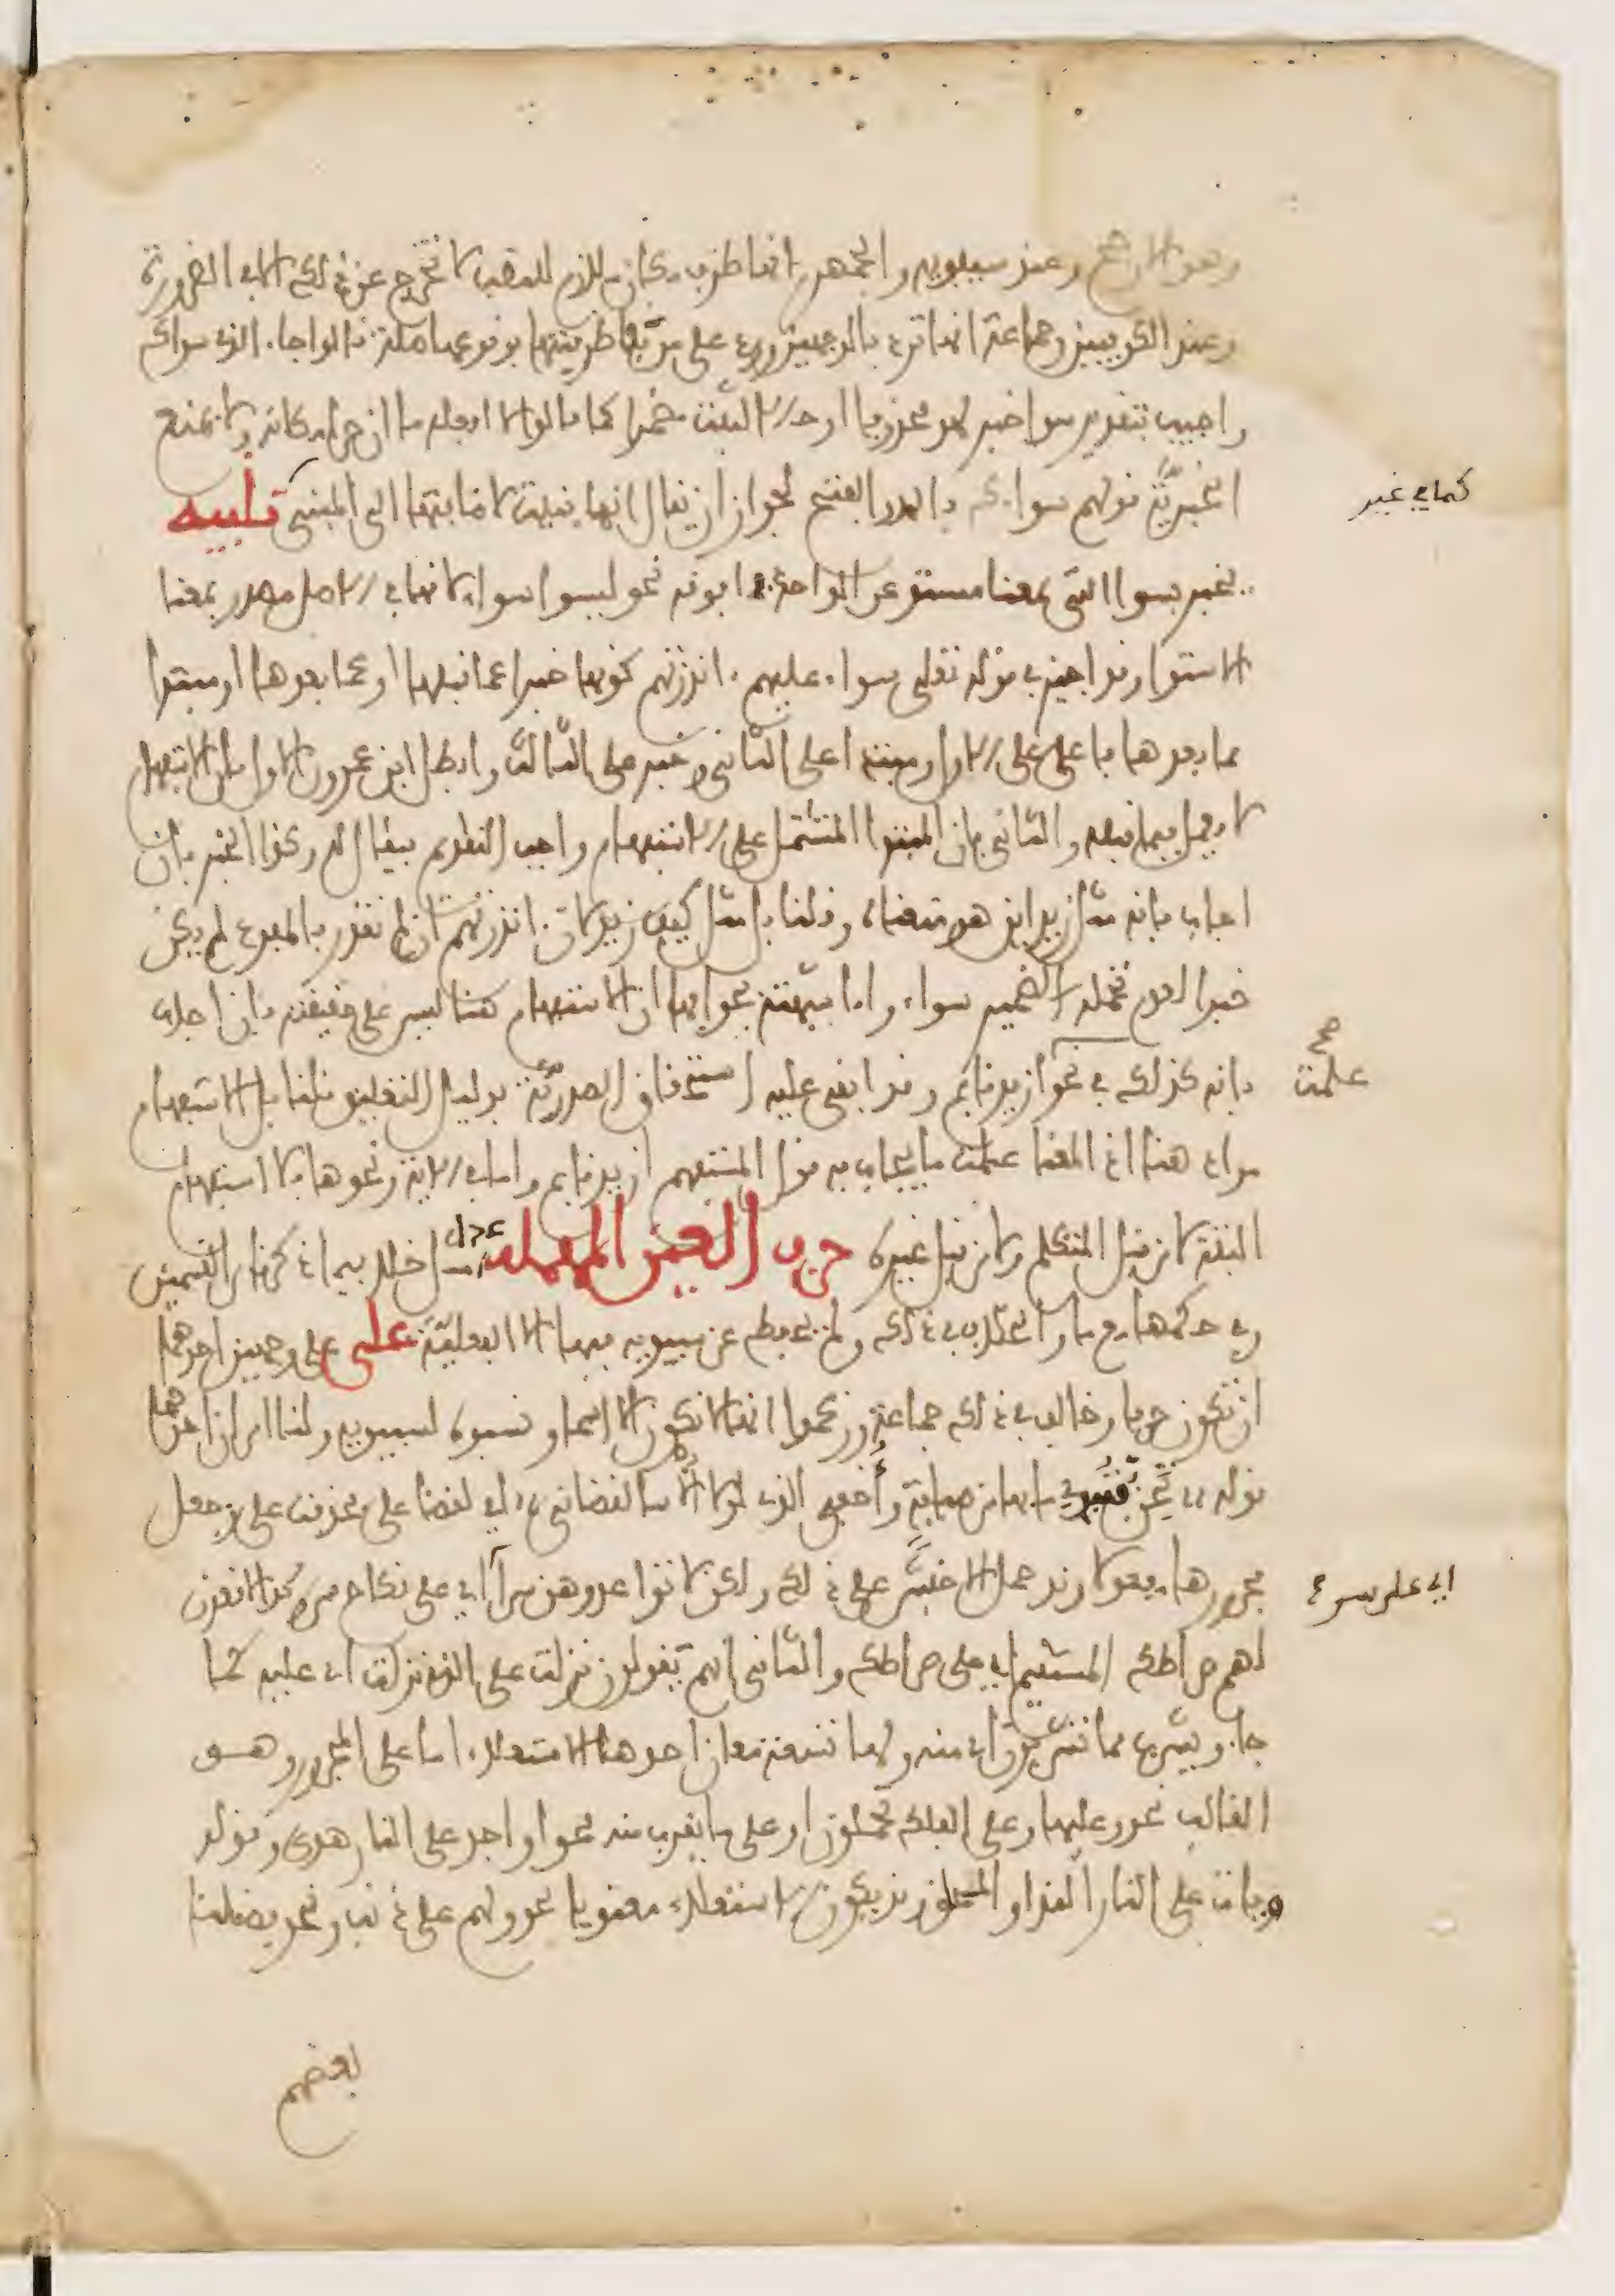 وهو الارجح وعند سيبويه والجمهور انها ظرف مكان ملازم للنصب لا تخرج عن ذلك الا في الضرورة
وعند الكوفيين وجماعة انها ترد بالوجهين ورد على من نفى ظرفيتها بوقوعها صلة قالوا جاء الذي سواك
واجيب بتقدير سوا خبر لهو محذوفا او حالا لثبت مضمرا كما قالوا لا افعله ما ان حراء مكانه ولا يمنع
الخبرية قولهم سواءك بالمد والفتح لجواز ان يقال انها بنيت لاضافتها الى المبني تنبيه
كما في غير
يخبر بسوا التي بمعنا مستو عن الواحد فما فوقه نحو ليسوا سواء لانها في الاصل مصدر بمعنا
الاستوا وقد اجيز في قوله تعلى سواء عليهم ءانذرتهم كونها خبرا عما قبلها او عما بعدها او مبتدا
عما بعدها فاعل على الاول ومبتدا على الثاني وخبر على الثالث وابطل ابن عمرون الاول بان الاستفهام
لا يعمل فيما قبله والثاني بان المبتدا المشتمل على الاستفهام واجب التقديم فيقال له وكذا الخبر فان
اجاب بانه مثل زيد اين هو منعناه وقلنا بل مثل كيف زيد لان ءانذرتهم ان لم تقدر بالمفرد لم يكن
خبرا لعدم تحمله الضمير سواء واما شبهته فجوابها ان الاستفهام هنا ليس على حقيقته فان اجاب
بانه كذلك في نحو ازيد قايم وقد ابقي عليه استحقاق الصدرية بدليل التعليق قلنا بل الاستفهام
صح
علمت
مراد هنا اذ المعنا علمت ما يجاب به قول المستفهم ازيد قايم واما في الاية ونحوها فلا استفهام
البتة لا من قبل المتكلم ولا من قبل غيره حرف العين المهملة عدا مثل خلا فيما ذكرناه من القسمين
وفي حكمها مع ما والخلاف في ذلك ولم يحفظ عن سيبويه فيها الا الفعلية على على وجهين احدهما
ان تكون حرفا وخالف في ذلك جماعة وزعموا انها لا تكون الا اسما ونسبوه لسيبويه ولنا امران احدهما
قوله تحن فتبدي ما بها من صبابة وأخفي الذي لولا الأسا لقضاني اي لقضا علي فحذفت على وجعل
مجرورها مفعولا وقد حمل الاخفش على ذلك ولكن لا تواعدوهن سرا اي على نكاح سر وكذا لاقعدن
اي على سر ح
لهم صراطك المستقيم اي على صراطك والثاني انهم يقولون نزلت على الذي نزلت اي عليه كما
جاء ويشرب مما تشربون اي منه ولها تسعة معان احدها الاستعلاء اما على المجرور وهو
الغالب نحو وعليها وعلى الفلك تحملون او على ما يقرب منه نحو او اجد على النار هدى وقوله
وبات على النار الندا والمحلق وقد يكون الاستعلاء معنويا نحو ولهم علي ذنب ونحو فضلنا
بعضهم